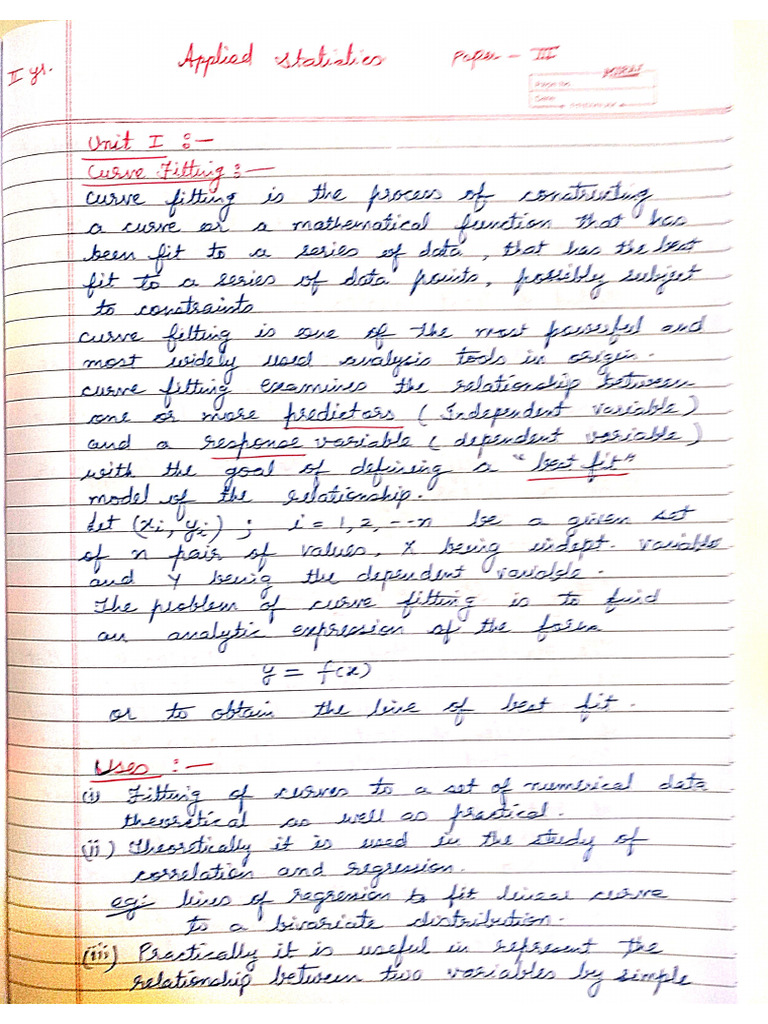 II yr.
Applied Statistics Paper - III
Page No.
Date
Unit I :-
Curve Fitting :-
curve fitting is the process of constructing
a curve or a mathematical function that has
been fit to a series of data, that has the best
fit to a series of data points, possibly subject
to constraints
curve fitting is one of the most powerful and
most widely used analysis tools in origin.
curve fitting examines the relationship between
one or more predictors (Independent variable)
and a response variable (dependent variable)
with the goal of defining a "best fit"
model of the relationship.
let (xi, yi) ; i = 1, 2, --- n be a given set
of n pair of values, X being indept. variable
and Y being the dependent variable.
The problem of curve fitting is to find
an analytic expression of the form
y = f(x)
or to obtain the line of best fit.
Uses :-
(i) Fitting of curves to a set of numerical data
theoretical as well as practical.
(ii) Theoretically it is used in the study of
correlation and regression.
eg:- lines of regression to fit linear curve
to a bivariate distribution.
(iii) Practically it is useful in represent the
relationship between two variables by simple